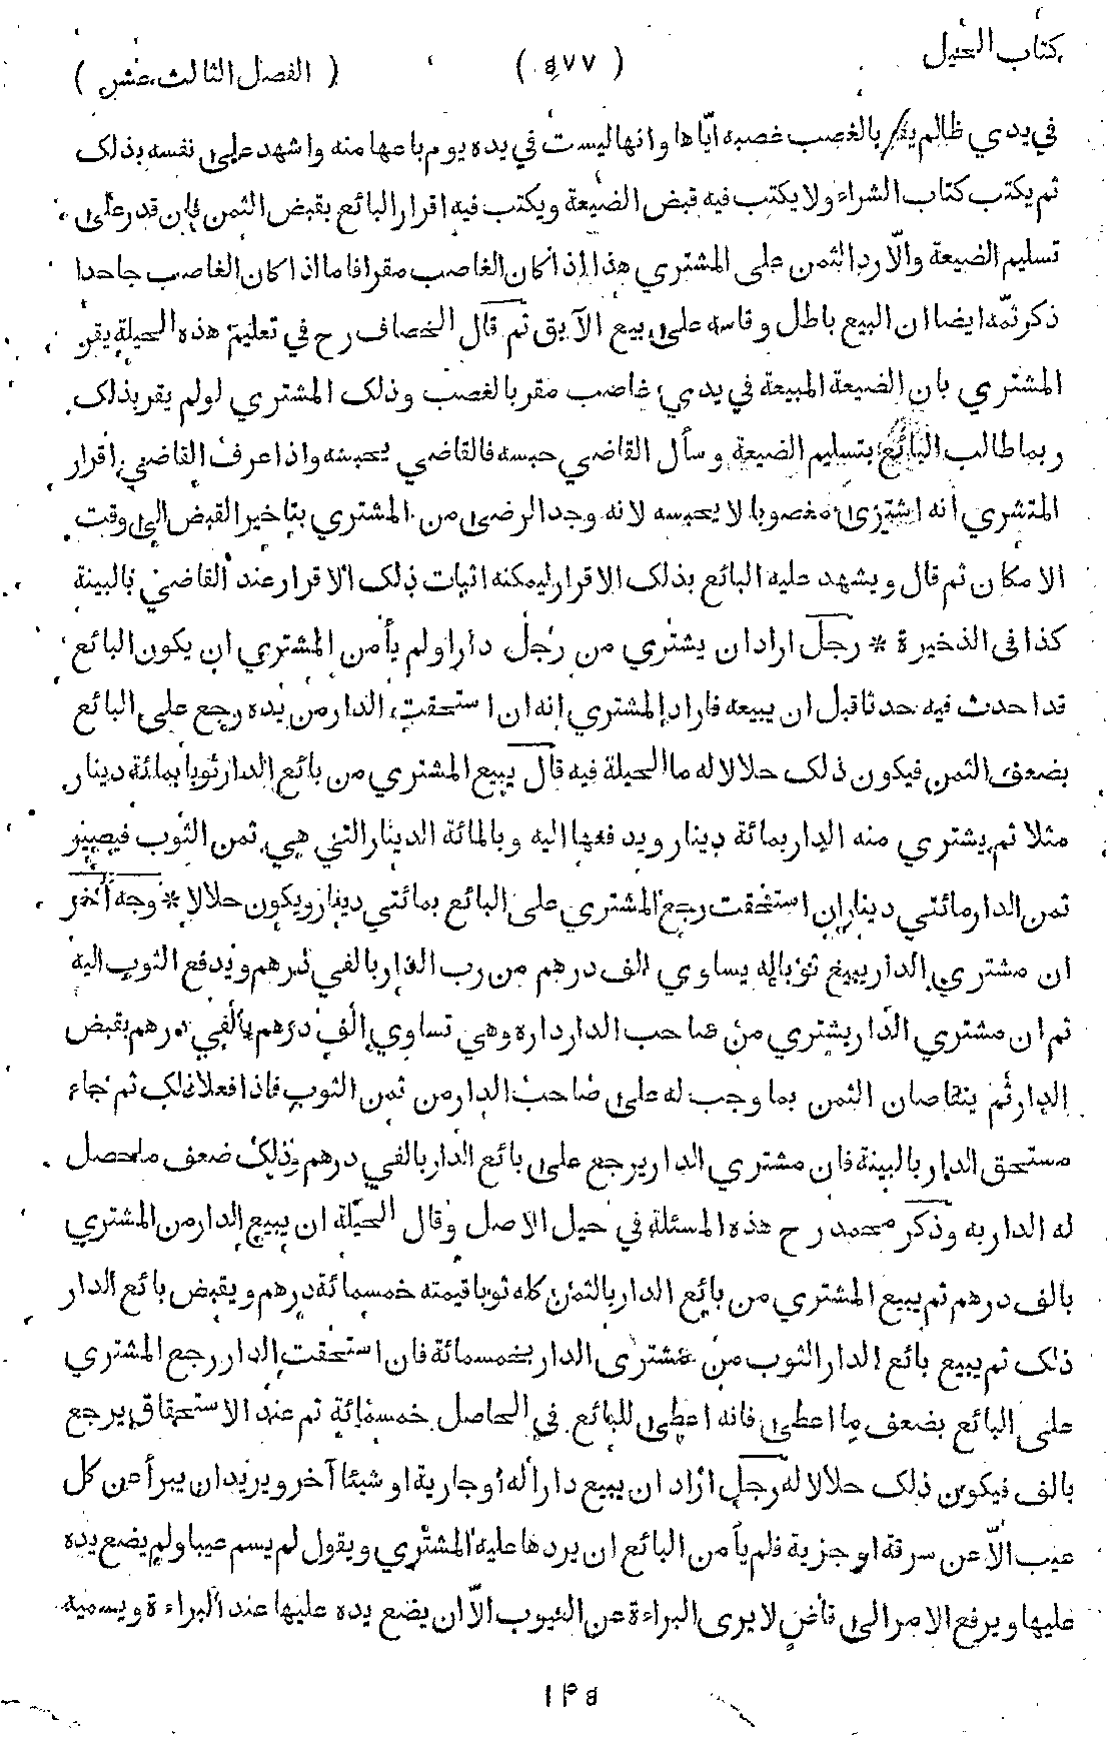 كتاب الحيل ( ٤٧٧ ) ( الفصل الثالث عشر )
في يدي ظالم يقر بالغصب غصبه ايّاها وانها ليست في يده يوم باعها منه واشهد على نفسه بذلك
ثم يكتب كتاب الشراء ولا يكتب فيه قبض الضيعة ويكتب فيه اقرار البائع بقبض الثمن فان قدر على
تسليم الضيعة والّا رد الثمن على المشتري هذا اذا كان الغاصب مقرا فاما اذا كان الغاصب جاحدا
ذكر ثمّه ايضا ان البيع باطل وقاسه على بيع الآبق ثم قال الخصاف رح في تعليم هذه الحيلة يقر
المشتري بان الضيعة المبيعة في يدي غاصب مقر بالغصب وذلك المشتري لو لم يقر بذلك
ربما طالب البائع بتسليم الضيعة وسأل القاضي حبسه فالقاضي يحبسه واذا عرف القاضي اقرار
المتشري انه اشترى مغصوبا لا يحبسه لانه وجد الرضى من المشتري بتاخير القبض الى وقت
الامكان ثم قال ويشهد عليه البائع بذلك الاقرار ليمكنه اثبات ذلك الاقرار عند القاضي بالبينة
كذا فى الذخيرة * رجل اراد ان يشتري من رجل دارا ولم يأمن المشتري ان يكون البائع
قد احدث فيه حدثا قبل ان يبيعه فاراد المشتري انه ان استحقت الدار من يده رجع على البائع
بضعف الثمن فيكون ذلك حلالا له ما الحيلة فيه قال يبيع المشتري من بائع الدار ثوبا بمائة دينار
مثلا ثم يشتري منه الدار بمائة دينار ويدفعها اليه وبالمائة الدينار التي هي ثمن الثوب فيصير
ثمن الدار مائتي دينار ان استحقت رجع المشتري على البائع بمائتي دينار ويكون حلالا * وجه آخر
ان مشتري الدار يبيع ثوبا له يساوي الف درهم من رب الدار بالفي درهم ويدفع الثوب اليه
ثم ان مشتري الدار يشتري من صاحب الدار داره وهي تساوي الف درهم بألفي درهم بقبض
الدار ثم يتقاصان الثمن بما وجب له على صاحب الدار من ثمن الثوب فاذا فعلا ذلك ثم جاء
مستحق الدار بالبينة فان مشتري الدار يرجع على بائع الدار بالفي درهم وذلك ضعف ما حصل
له الدار به وذكر محمد رح هذه المسئلة في حيل الاصل وقال الحيلة ان يبيع الدار من المشتري
بالف درهم ثم يبيع المشتري من بائع الدار بالثمن كله ثوبا قيمته خمسمائة درهم ويقبض بائع الدار
ذلك ثم يبيع بائع الدار الثوب من مشترى الدار بخمسمائة فان استحقت الدار رجع المشتري
على البائع بضعف ما اعطى فانه اعطى للبائع في الحاصل خمسمائة ثم عند الاستحقاق يرجع
بالف فيكون ذلك حلالا له رجل اراد ان يبيع دارا له او جارية او شيئا آخر ويريد ان يبرأ عن كل
عيب الّا عن سرقة او جزية فلم يأمن البائع ان يردها عليه المشتري ويقول لم يسم عيبا ولم يضع يده
عليها ويرفع الامر الى قاض لا يرى البراءة عن العيوب الّا ان يضع يده عليها عند البراءة ويسميه